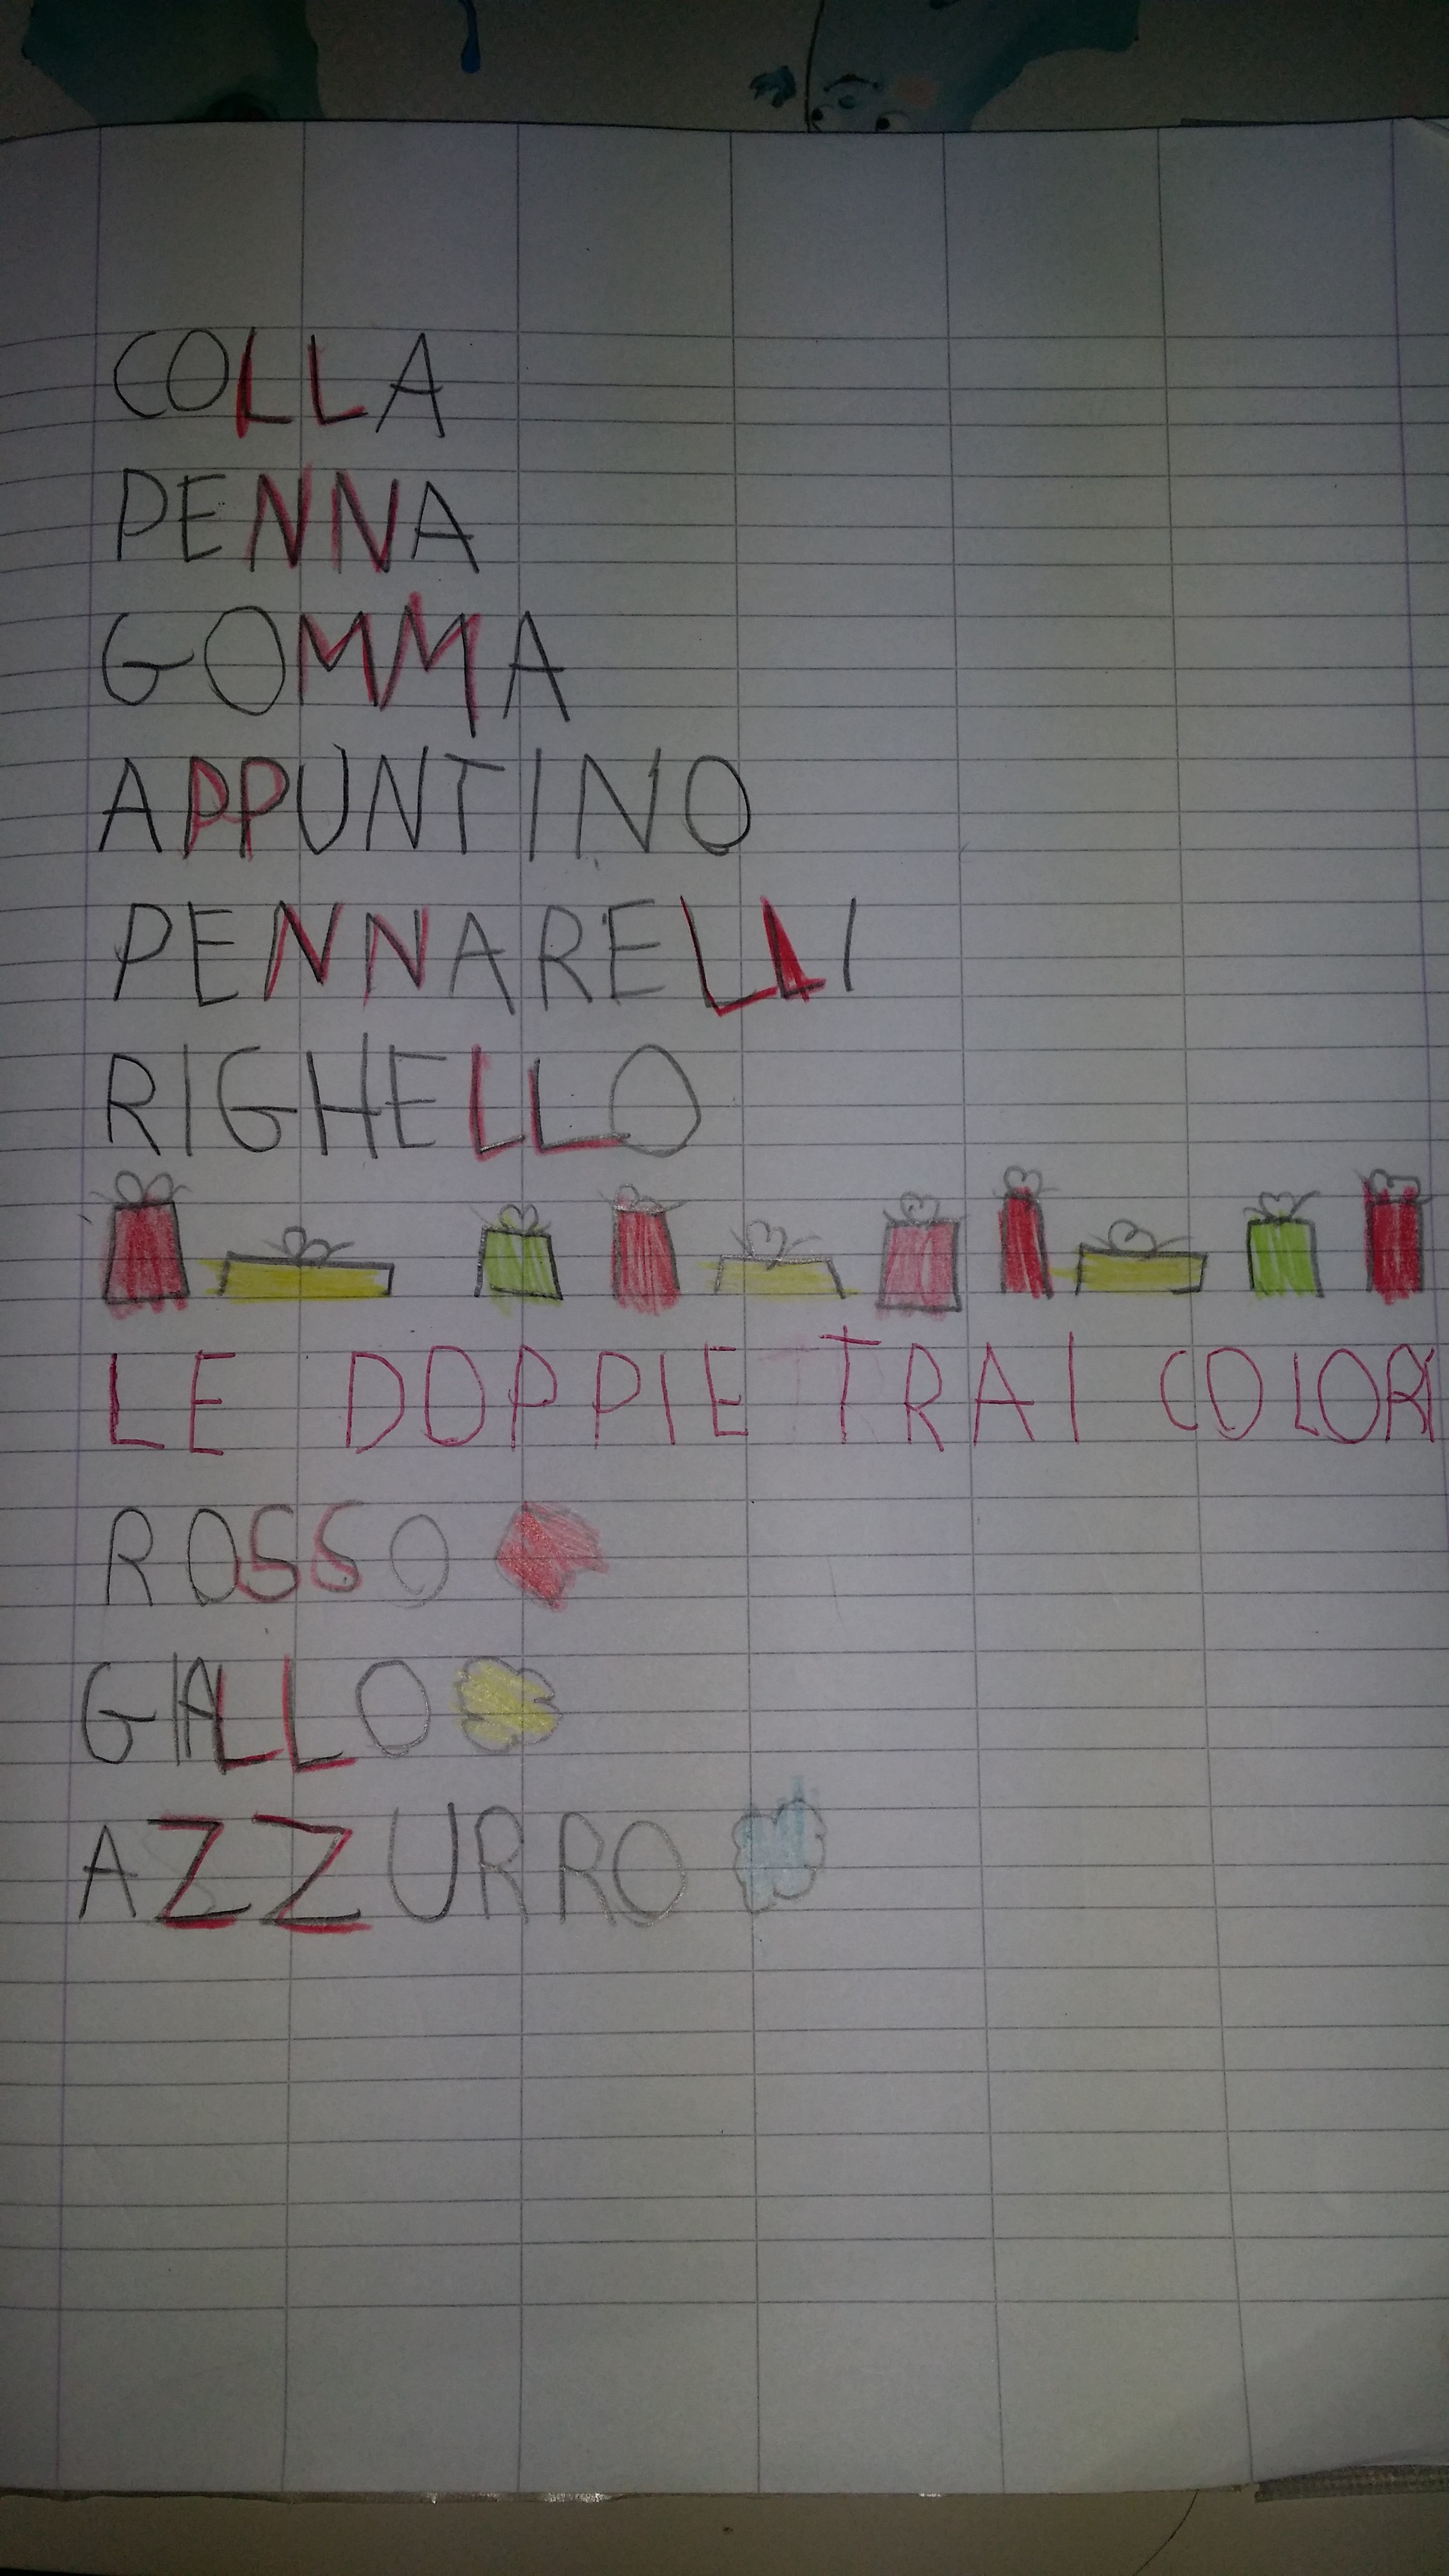 COLLA
PENNA
GOMMA
APPUNTINO
PENNARELLI
RIGHELLO
LE DOPPIE TRA I COLORI
ROSSO
GIALLO
AZZURRO